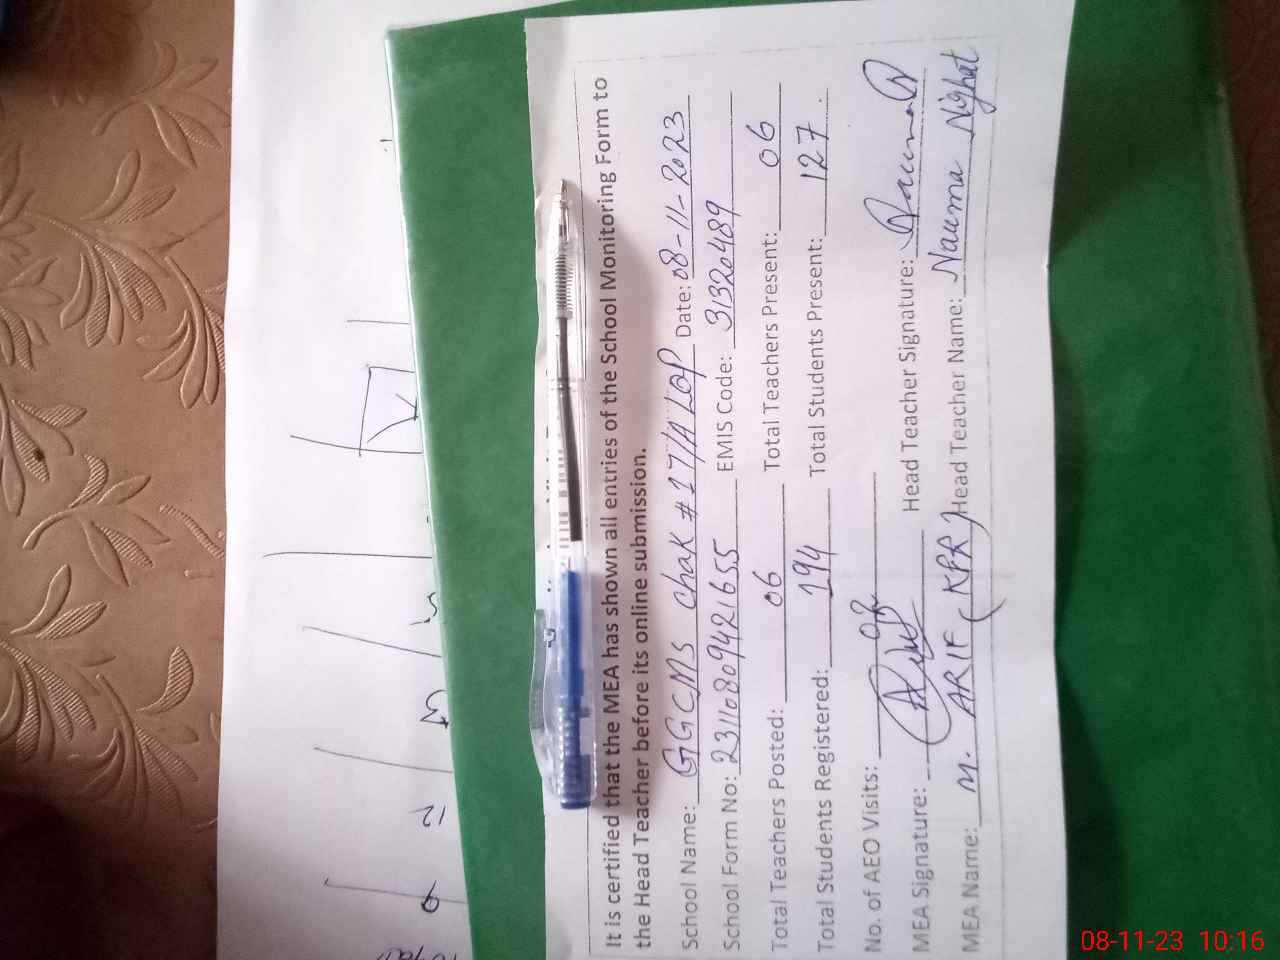 It is certified that the MEA has shown all entries of the School Monitoring Form to
the Head Teacher before its online submission.
School Name: GGCMS Chak # 17/A LQP Date: 08-11-2023
School Form No: 23110809421655 EMIS Code: 31320489
Total Teachers Posted: 06 Total Teachers Present: 06
Total Students Registered: 194 Total Students Present: 127
No. of AEO Visits: 02
MEA Signature: Head Teacher Signature:
MEA Name: M. ARIF (KPR) Head Teacher Name: Nauma Nighat
9 12
08-11-23 10:16